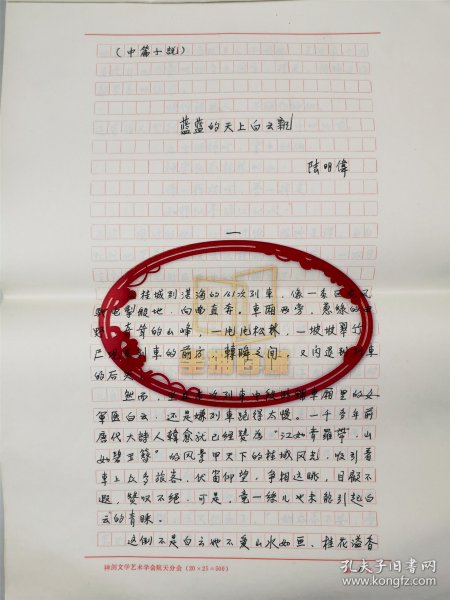 （中篇小说）
蓝蓝的天上白云飘
陆明伟
一
桂城到湛海的161次列车，像一条
驰电掣般地，向西直奔，车厢两旁，葱绿的
青葺的山峰，一片片松林，一坡坡翠竹
列车的前方，转瞬之间，又闪退到列车
的后
然而，车厢里的女
军医白云，还是嫌列车跑得太慢。一千多年前
唐代大诗人韩愈就已经赞为“江如青罗带，山
如碧玉簪”的风景甲天下的桂城风光，吸引着
车上众多旅客，伏窗仰望，争相远眺，目睱不
遐，赞叹不绝。可是，竟一丝儿也未能引起白
云的青睐。
这倒不是白云她不爱山水如画，桂花溢香
神剑文学艺术学会航天分会（20×25＝500）
孔夫子旧书网